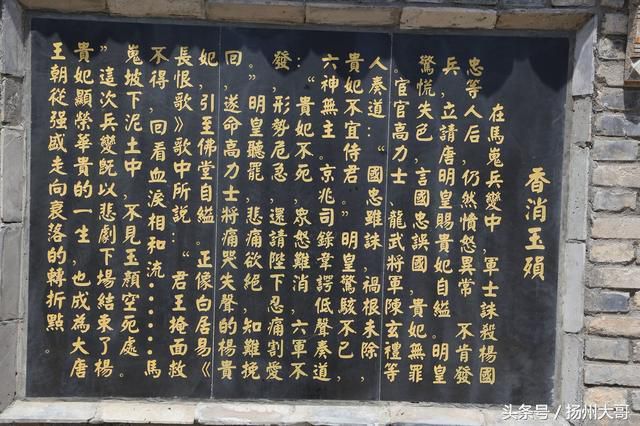 香消玉殞
在馬嵬兵變中，軍士誅殺楊國
忠等人后，仍然憤怨異常，不肯發
兵，立請唐明皇賜貴妃自縊。明皇
驚慌失色，言國忠誤國，貴妃無罪
。官官高力士、龍武將軍陳玄禮等
人奏道：“國忠雖誅，禍根未除，
貴妃不宜侍君。”明皇驚駭不已，
六神無主。京兆司錄韋諤低聲奏道
：“貴妃不死，衆怨難消，六軍不
發，形勢危急，還請陛下忍痛割愛
。”明皇聽罷，悲痛欲絕，知難挽
回，遂命高力士將痛哭失聲的楊貴
妃，引至佛堂自縊。正像白居易《
長恨歌》歌中所說：“君王掩面救
不得，回看血淚相和流……馬
嵬坡下泥土中，不見玉顏空死處。
”這次兵變既以悲劇下場結束了楊
貴妃顯榮華貴的一生，也成為大唐
王朝從强盛走向衰落的轉折點。
头条号 / 扬州大哥